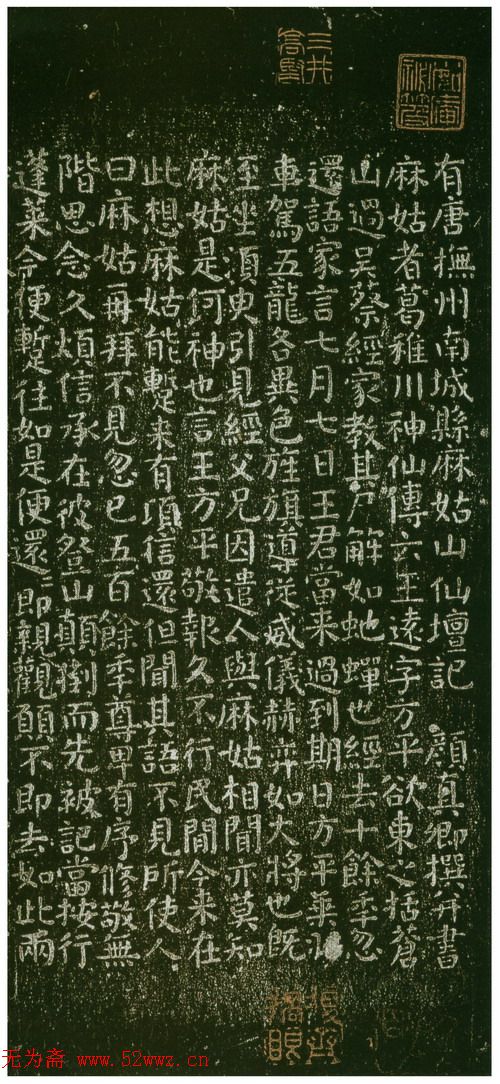 三井高堅
有唐撫州南城縣麻姑山仙壇記 顏真卿撰并書
麻姑者葛稚川神仙傳云王遠字方平欲東之括蒼
山過吳蔡經家教其尸解如虵蟬也經去十餘季忽
還語家言七月七日王君當来過到期日方平乘羽
車駕五龍各異色旌旗導從威儀赫弈如大將也既
至坐須臾引見經父兄因遣人與麻姑相聞亦莫知
麻姑是何神也言王方平敬報久不行民間今来在
此想麻姑能蹔来有頃信還但聞其語不見所使人
曰麻姑再拜不見忽已五百餘季尊卑有序修敬無
階思念久煩信承在彼登山顛倒而先被記當按行
蓬萊今便蹔往如是便還〻即親觀願不即去如此兩
无为斋 www.52wwz.cn